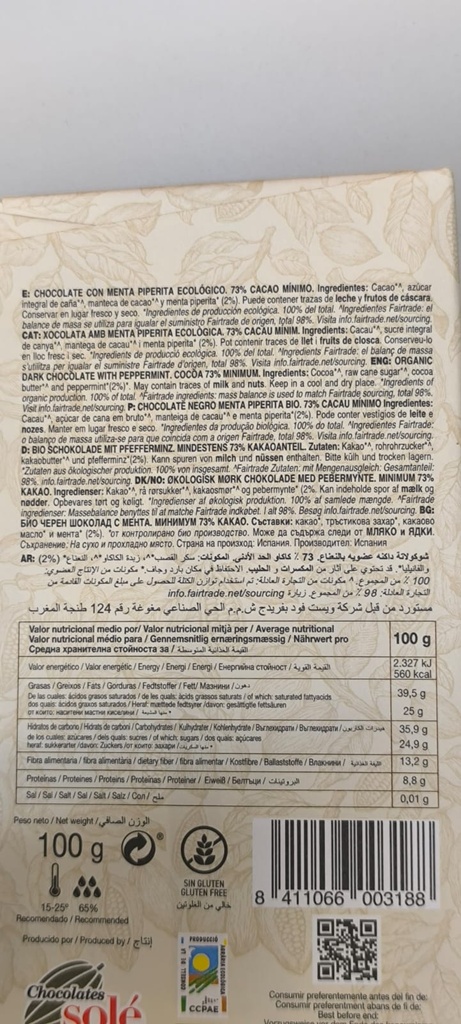 E: CHOCOLATE CON MENTA PIPERITA ECOLÓGICO. 73% CACAO MÍNIMO. Ingredientes: Cacao*^, azúcar
integral de caña*^, manteca de cacao*^ y menta piperita* (2%). Puede contener trazas de leche y frutos de cáscara.
Conservar en lugar fresco y seco. *Ingredientes de producción ecológica. 100% del total. ^Ingredientes Fairtrade: el
balance de masa se utiliza para igualar el suministro Fairtrade de origen, total 98%. Visita info.fairtrade.net/sourcing.
CAT: XOCOLATA AMB MENTA PIPERITA ECOLÒGICA. 73% CACAU MÍNIM. Ingredients: Cacau*^, sucre integral
de canya*^, mantega de cacau*^ i menta piperita* (2%). Pot contenir traces de llet i fruits de closca. Conserveu-lo
en lloc fresc i sec. *Ingredients de producció ecològica. 100% del total. ^Ingredients Fairtrade: el balanç de massa
s'utilitza per igualar el suministre Fairtrade d'origen, total 98%. Visita info.fairtrade.net/sourcing. ENG: ORGANIC
DARK CHOCOLATE WITH PEPPERMINT. COCOA 73% MINIMUM. Ingredients: Cocoa*^, raw cane sugar*^, cocoa
butter*^ and peppermint*(2%)*. May contain traces of milk and nuts. Keep in a cool and dry place. *Ingredients of
organic production. 100% of total. ^Fairtrade ingredients: mass balance is used to match Fairtrade sourcing, total 98%.
Visit info.fairtrade.net/sourcing. P: CHOCOLATE NEGRO MENTA PIPERITA BIO, 73% CACAU MÍNIMO Ingredientes:
Cacau*^, açúcar de cana em bruto*^, manteiga de cacau*^ e menta piperita*(2%). Pode conter vestígios de leite e
nozes. Manter em lugar fresco e seco. *Ingredientes da produção biológica. 100% do total. ^Ingredientes Fairtrade:
o balanço de massa utiliza-se para que coincida com a origen Fairtrade, total 98%. Visita info.fairtrade.net/sourcing.
D: BIO SCHOKOLADE MIT PFEFFERMINZ. MINDESTENS 73% KAKAOANTEIL. Zutaten: Kakao*^, rohrohrzucker*^,
kakaobutter*^ und pfefferminz*(2%). Kann spuren von milch und nüssen enthalten. Bitte kühl und trocken lagern.
*Zutaten aus ökologischer produktion. 100% von insgesamt. ^Fairtrade Zutaten: mit Mengenausgleich: Gesamtanteil:
98%. info.fairtrade.net/sourcing. DK/NO: ØKOLOGISK MØRK CHOKOLADE MED PEBERMYNTE. MINIMUM 73%
KAKAO. Ingredienser: Kakao*^, rå rørsukker*^, kakaosmør*^ og pebermynte* (2%. Kan indeholde spor af mælk og
nødder. Opbevares tørt og køligt. *Ingredienser af økologisk produktion. 100% af samlede mængde. ^Fairtrade
ingredienser: Massebalance benyttes til at matche Fairtrade indkøbet. I alt 98%. Besøg info.fairtrade.net/sourcing. BG:
БИО ЧЕРЕН ШОКОЛАД С МЕНТА. МИНИМУМ 73% КАКАО. Съставки: какао*, тръстикова захар*, какаово
масло* и мента* (2%). *от контролирано био производство. Може да съдържа следи от МЛЯКО и ЯДКИ.
Съхранение: На сухо и прохладно място. Страна на произход: Испания. Производител: Испания
AR: شوكولاتة داكنة عضوية بالنعناع. 73 ٪ كاكاو الحد الأدنى. المكونات: سكر القصب*^، زبدة الكاكاو*^، النعناع* (2%)
والفانيليا*. قد تحتوي على آثار من المكسرات و الحليب. الاحتفاظ في مكان بارد وجاف. * مكونات من الإنتاج العضوي.
100 ٪ من المجموع. ^ مكونات من التجارة العادلة: تم استخدام توازن الكتلة للحصول على مبلغ المكونات القادمة من
التجارة العادلة: 98 ٪ من المجموع. زيارة info.fairtrade.net/sourcing
مستورد من قبل شركة ويست فود بفريدج ش.م.م الحي الصناعي مغوغة رقم 124 طنجة المغرب
Valor nutricional medio por/ Valor nutricional mitjà per / Average nutritional
Valor nutricional médio para / Gennemsnitlig ernæringsmæssig / Nährwert pro
Средна хранителна стойноста за / القيمة الغذائية المتوسطة
100 g
Valor energético / Valor energètic / Energy / Energi / Energi / Енергийна стойност / القيمة الطاقية
2.327 kJ
560 kcal
Grasas / Greixos / Fats / Gorduras / Fedtstoffer / Fett/ Мазнини / دهون
De las cuales: ácidos grasos saturados / de les quals: àcids grassos saturats / of which: saturated fattyacids
dos quais: ácidos graxos saturados / Heraf: mættede fedtsyrer /davon: gesättigte fettsäuren
39,5 g
25 g
Hidratos de carbono / Hidrats de carboni / Carbohydrates / Kulhydrater / Kohlenhydrate / Въглехидрати / Въглехидрати
de los cuales: azúcares / dels quals: sucres / of which: sugars / dos quais: açúcares
heraf: sukkerarter /davon: Zuckers
35,9 g
24,9 g
Fibra alimentaria / fibra alimentària / dietary fiber / fibra alimentar / Kostfibre / Ballaststoffe / Влакнини / الألياف الغذائية
13,2 g
Proteínas / Proteïnes / Proteins / Proteínas / Proteiner / Eiweiß / Белтъци / البروتينات
8,8 g
Sal / Sal / Salt / Sal / Salt / Salz / Сол / ملح
0,01 g
Peso neto / Net weight / الوزن الصافي
100 g
15-25º 65%
Recomendado / Recommended
SIN GLUTEN
GLUTEN FREE
خالي من الغلوتين
8 411066 003188
Producido por / Produced by / إنتاج
Chocolates
solé
PRODUCCIÓ
CCPAE
Consumir preferentemente antes del fin de:
Consumir preferentment abans de fi de:
Best before end: